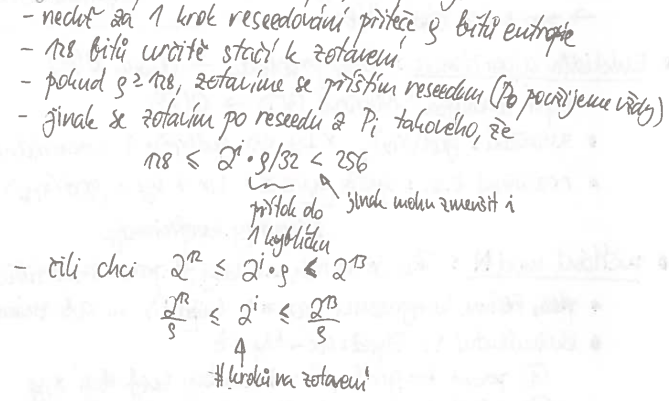 - nechť za 1 krok reseedování přiteče ρ bitů entropie
- 128 bitů určitě stačí k zotavení
- pokud ρ ≥ 128, zotavíme se příštím reseedem (P₀ použijeme vždy)
- jinak se zotavím po reseedu z Pᵢ takového, že
128 ≤ 2ⁱ · ρ/32 < 256
přítok do 1 kyblíčku
jinak mohu zmenšit i
- čili chci 2¹² ≤ 2ⁱ · ρ < 2¹³
2¹²/ρ ≤ 2ⁱ ≤ 2¹³/ρ
# kroků na zotavení